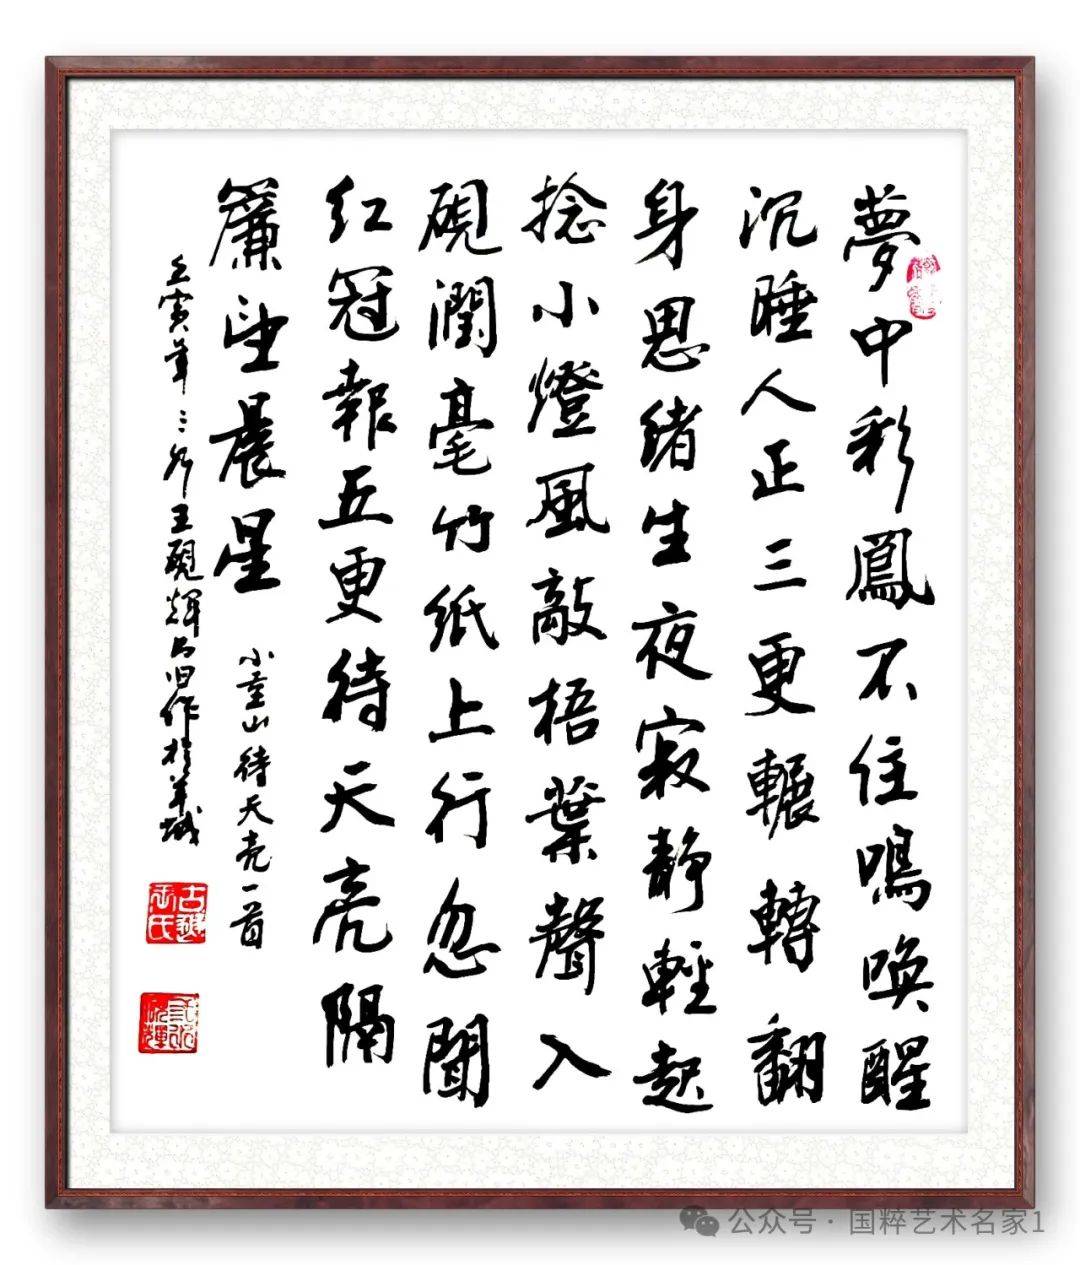 夢中彩鳳不住鳴喚醒
沉睡人正三更輾轉翻
身思緒生夜寂靜輕起
捻小燈風敲梧葉聲入
硯潤毫竹紙上行忽聞
红冠報五更待天亮隔
簾望晨星
小重山待天亮一首
壬寅年三月王硯輝书旧作於羊城
公众号·国粹艺术名家1